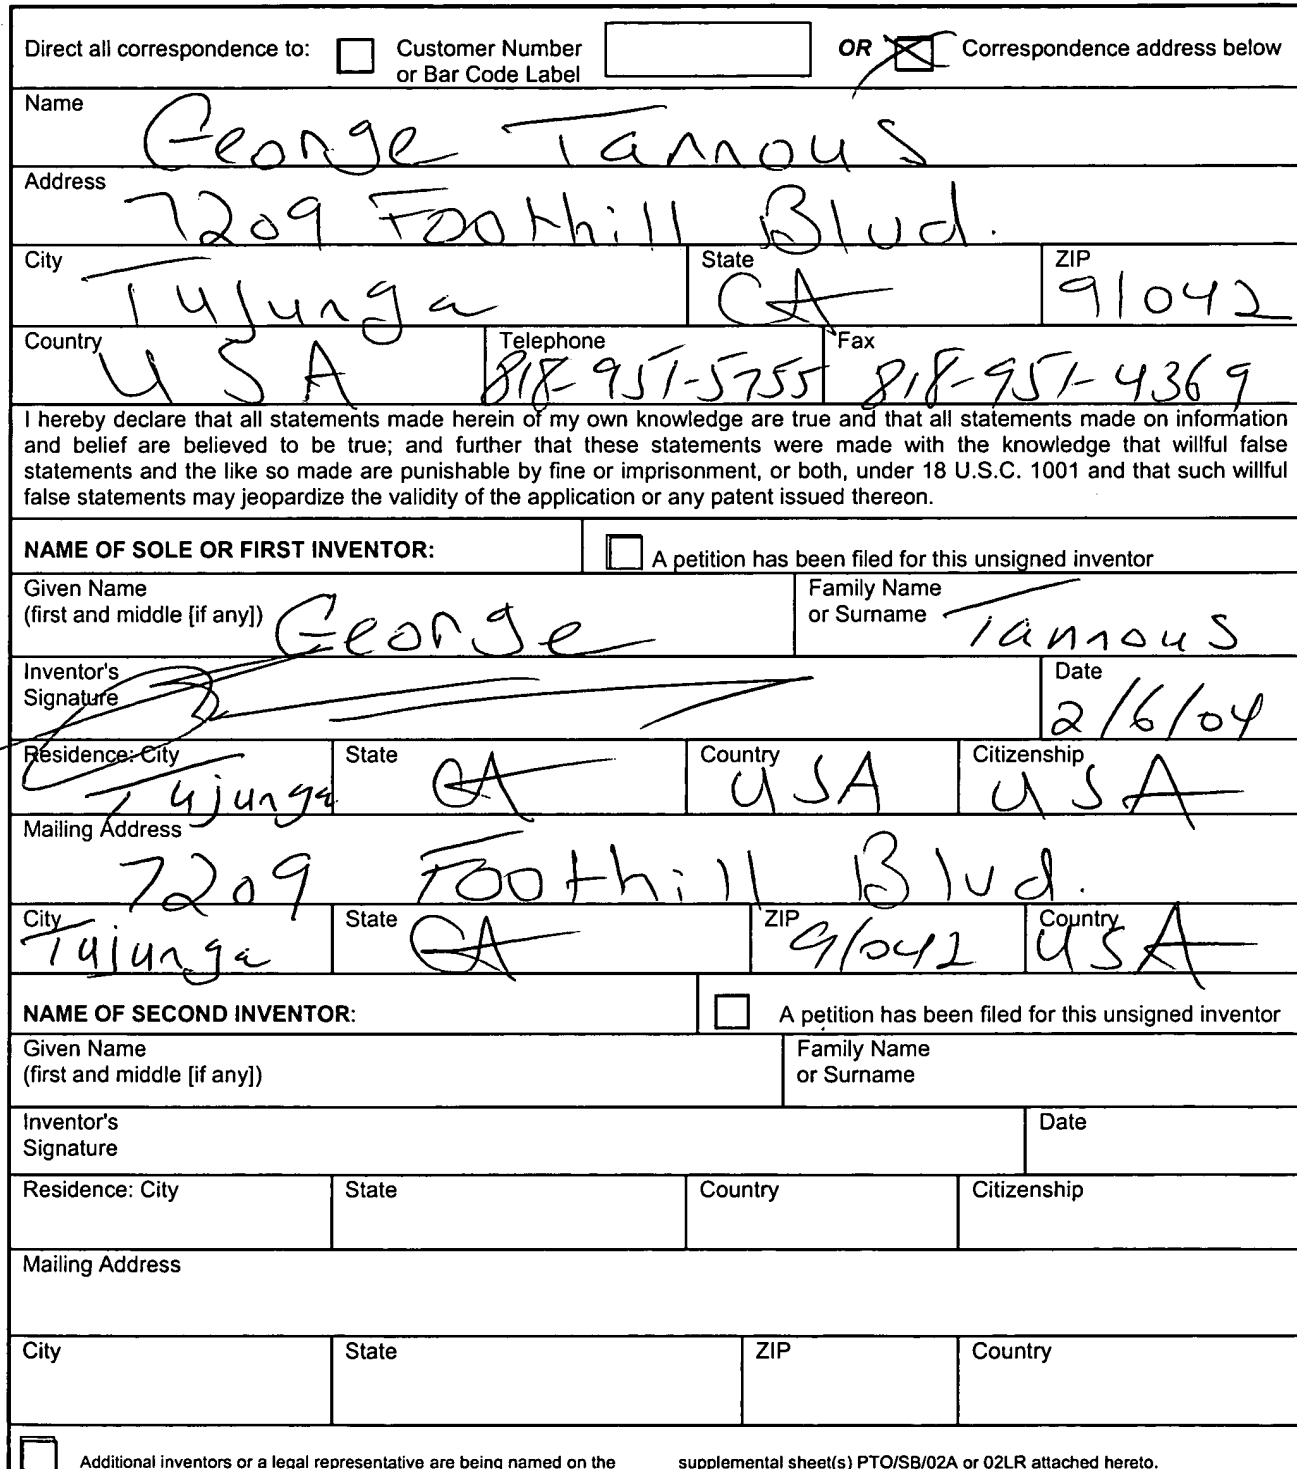 Direct all correspondence to: Customer Number or Bar Code Label OR Correspondence address below
Name
George Tannous
Address
7209 Foothill Blvd.
City State ZIP
Tujunga CA 91042
Country Telephone Fax
USA 818-951-5755 818-951-4369
I hereby declare that all statements made herein of my own knowledge are true and that all statements made on information
and belief are believed to be true; and further that these statements were made with the knowledge that willful false
statements and the like so made are punishable by fine or imprisonment, or both, under 18 U.S.C. 1001 and that such willful
false statements may jeopardize the validity of the application or any patent issued thereon.
NAME OF SOLE OR FIRST INVENTOR: A petition has been filed for this unsigned inventor
Given Name
(first and middle [if any]) George
Family Name
or Surname Tannous
Inventor's
Signature
Date
2/6/04
Residence: City State Country Citizenship
Tujunga CA USA USA
Mailing Address
7209 Foothill Blvd.
City State ZIP Country
Tujunga CA 91042 USA
NAME OF SECOND INVENTOR: A petition has been filed for this unsigned inventor
Given Name
(first and middle [if any])
Family Name
or Surname
Inventor's
Signature
Date
Residence: City State Country Citizenship
Mailing Address
City State ZIP Country
Additional inventors or a legal representative are being named on the supplemental sheet(s) PTO/SB/02A or 02LR attached hereto.